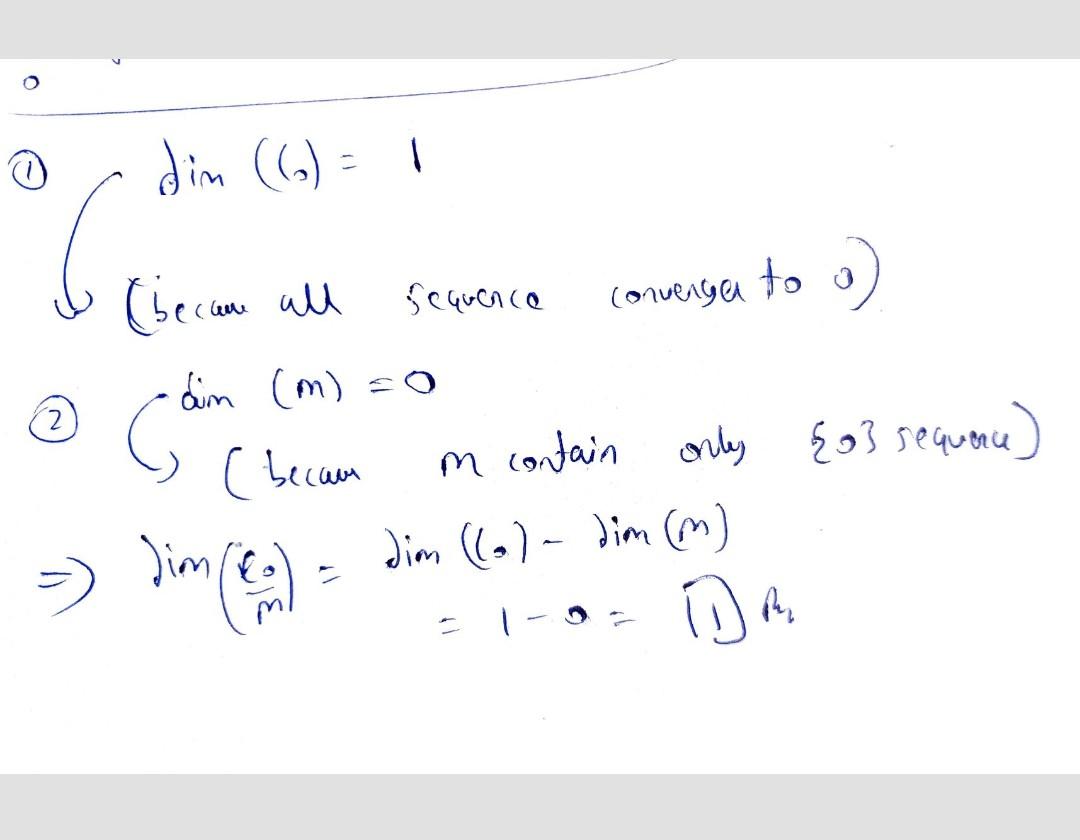 0
① dim (C₀) = 1
(because all sequence converges to 0)
② dim (m) = 0
(because m contain only {0} sequence)
⇒ dim (C₀/m) = dim (C₀) - dim (m)
= 1 - 0 = 1